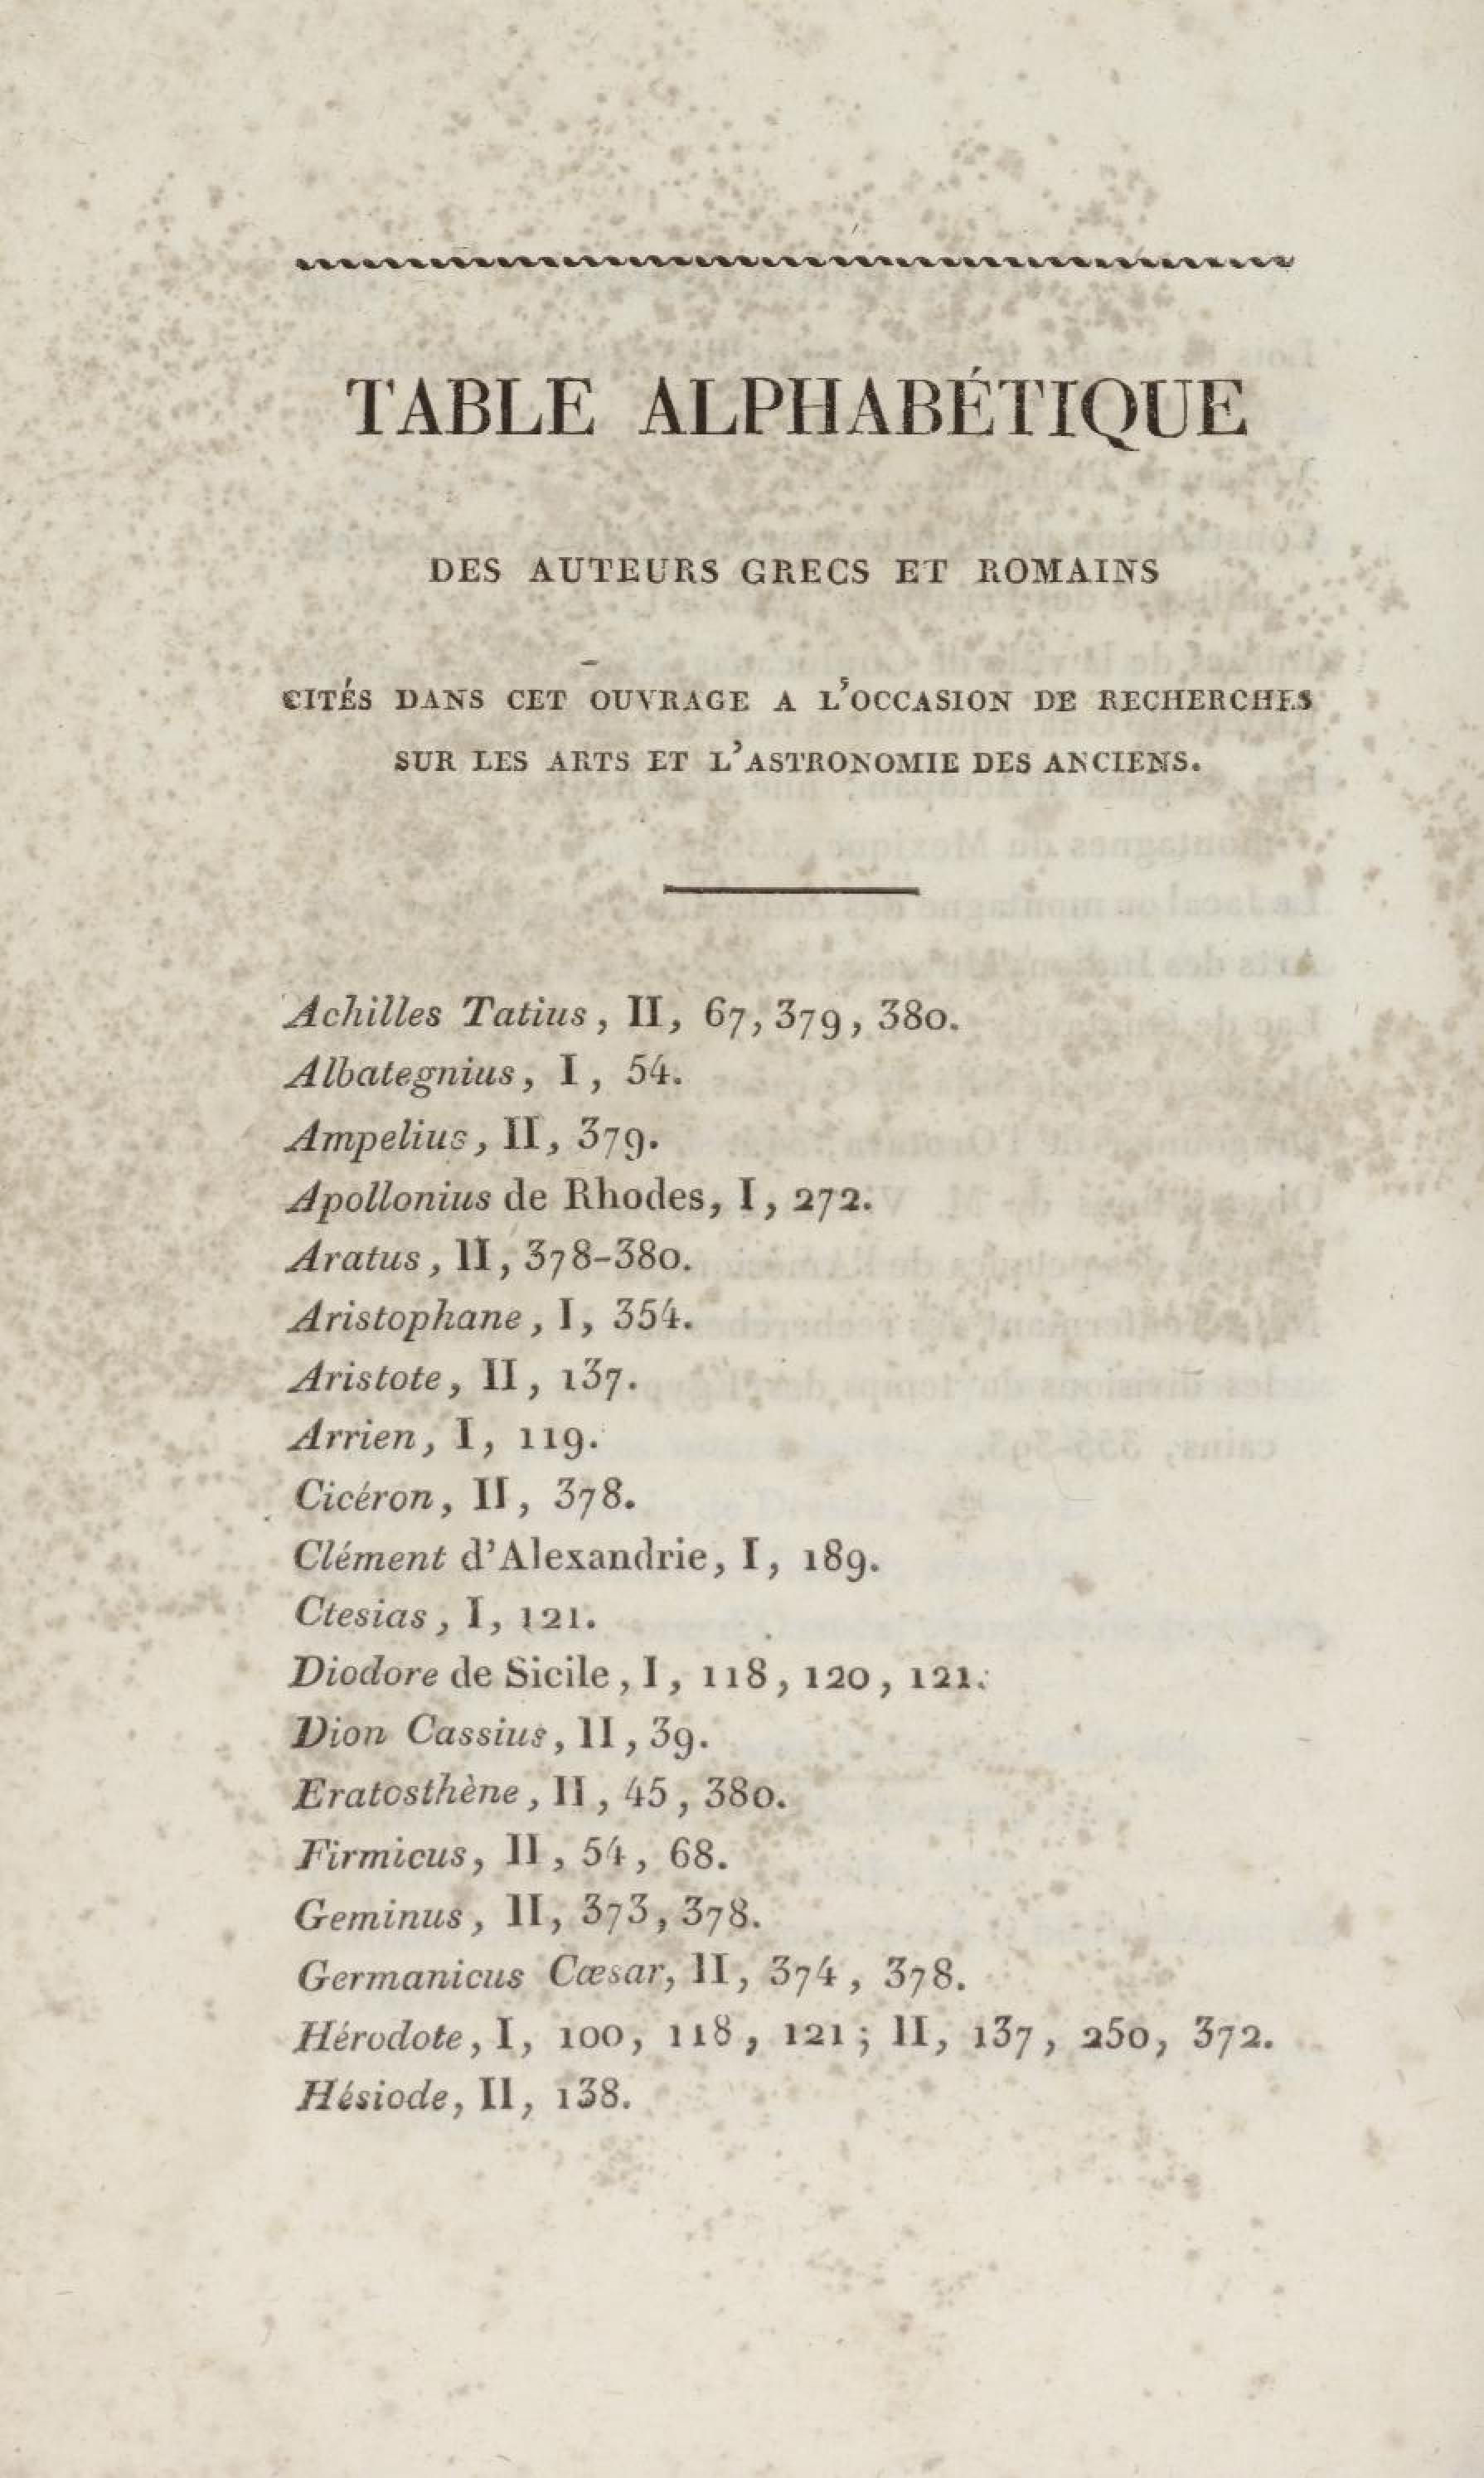 TABLE ALPHABÉTIQUE
DES AUTEURS GRECS ET ROMAINS
CITÉS DANS CET OUVRAGE A L'OCCASION DE RECHERCHES
SUR LES ARTS ET L'ASTRONOMIE DES ANCIENS.
Achilles Tatius, II, 67, 379, 380.
Albategnius, I, 54.
Ampelius, II, 379.
Apollonius de Rhodes, I, 272.
Aratus, II, 378-380.
Aristophane, I, 354.
Aristote, II, 137.
Arrien, I, 119.
Cicéron, II, 378.
Clément d'Alexandrie, I, 189.
Ctesias, I, 121.
Diodore de Sicile, I, 118, 120, 121.
Dion Cassius, II, 39.
Eratosthène, II, 45, 380.
Firmicus, II, 54, 68.
Geminus, II, 373, 378.
Germanicus Cæsar, II, 374, 378.
Hérodote, I, 100, 118, 121; II, 137, 250, 372.
Hésiode, II, 138.